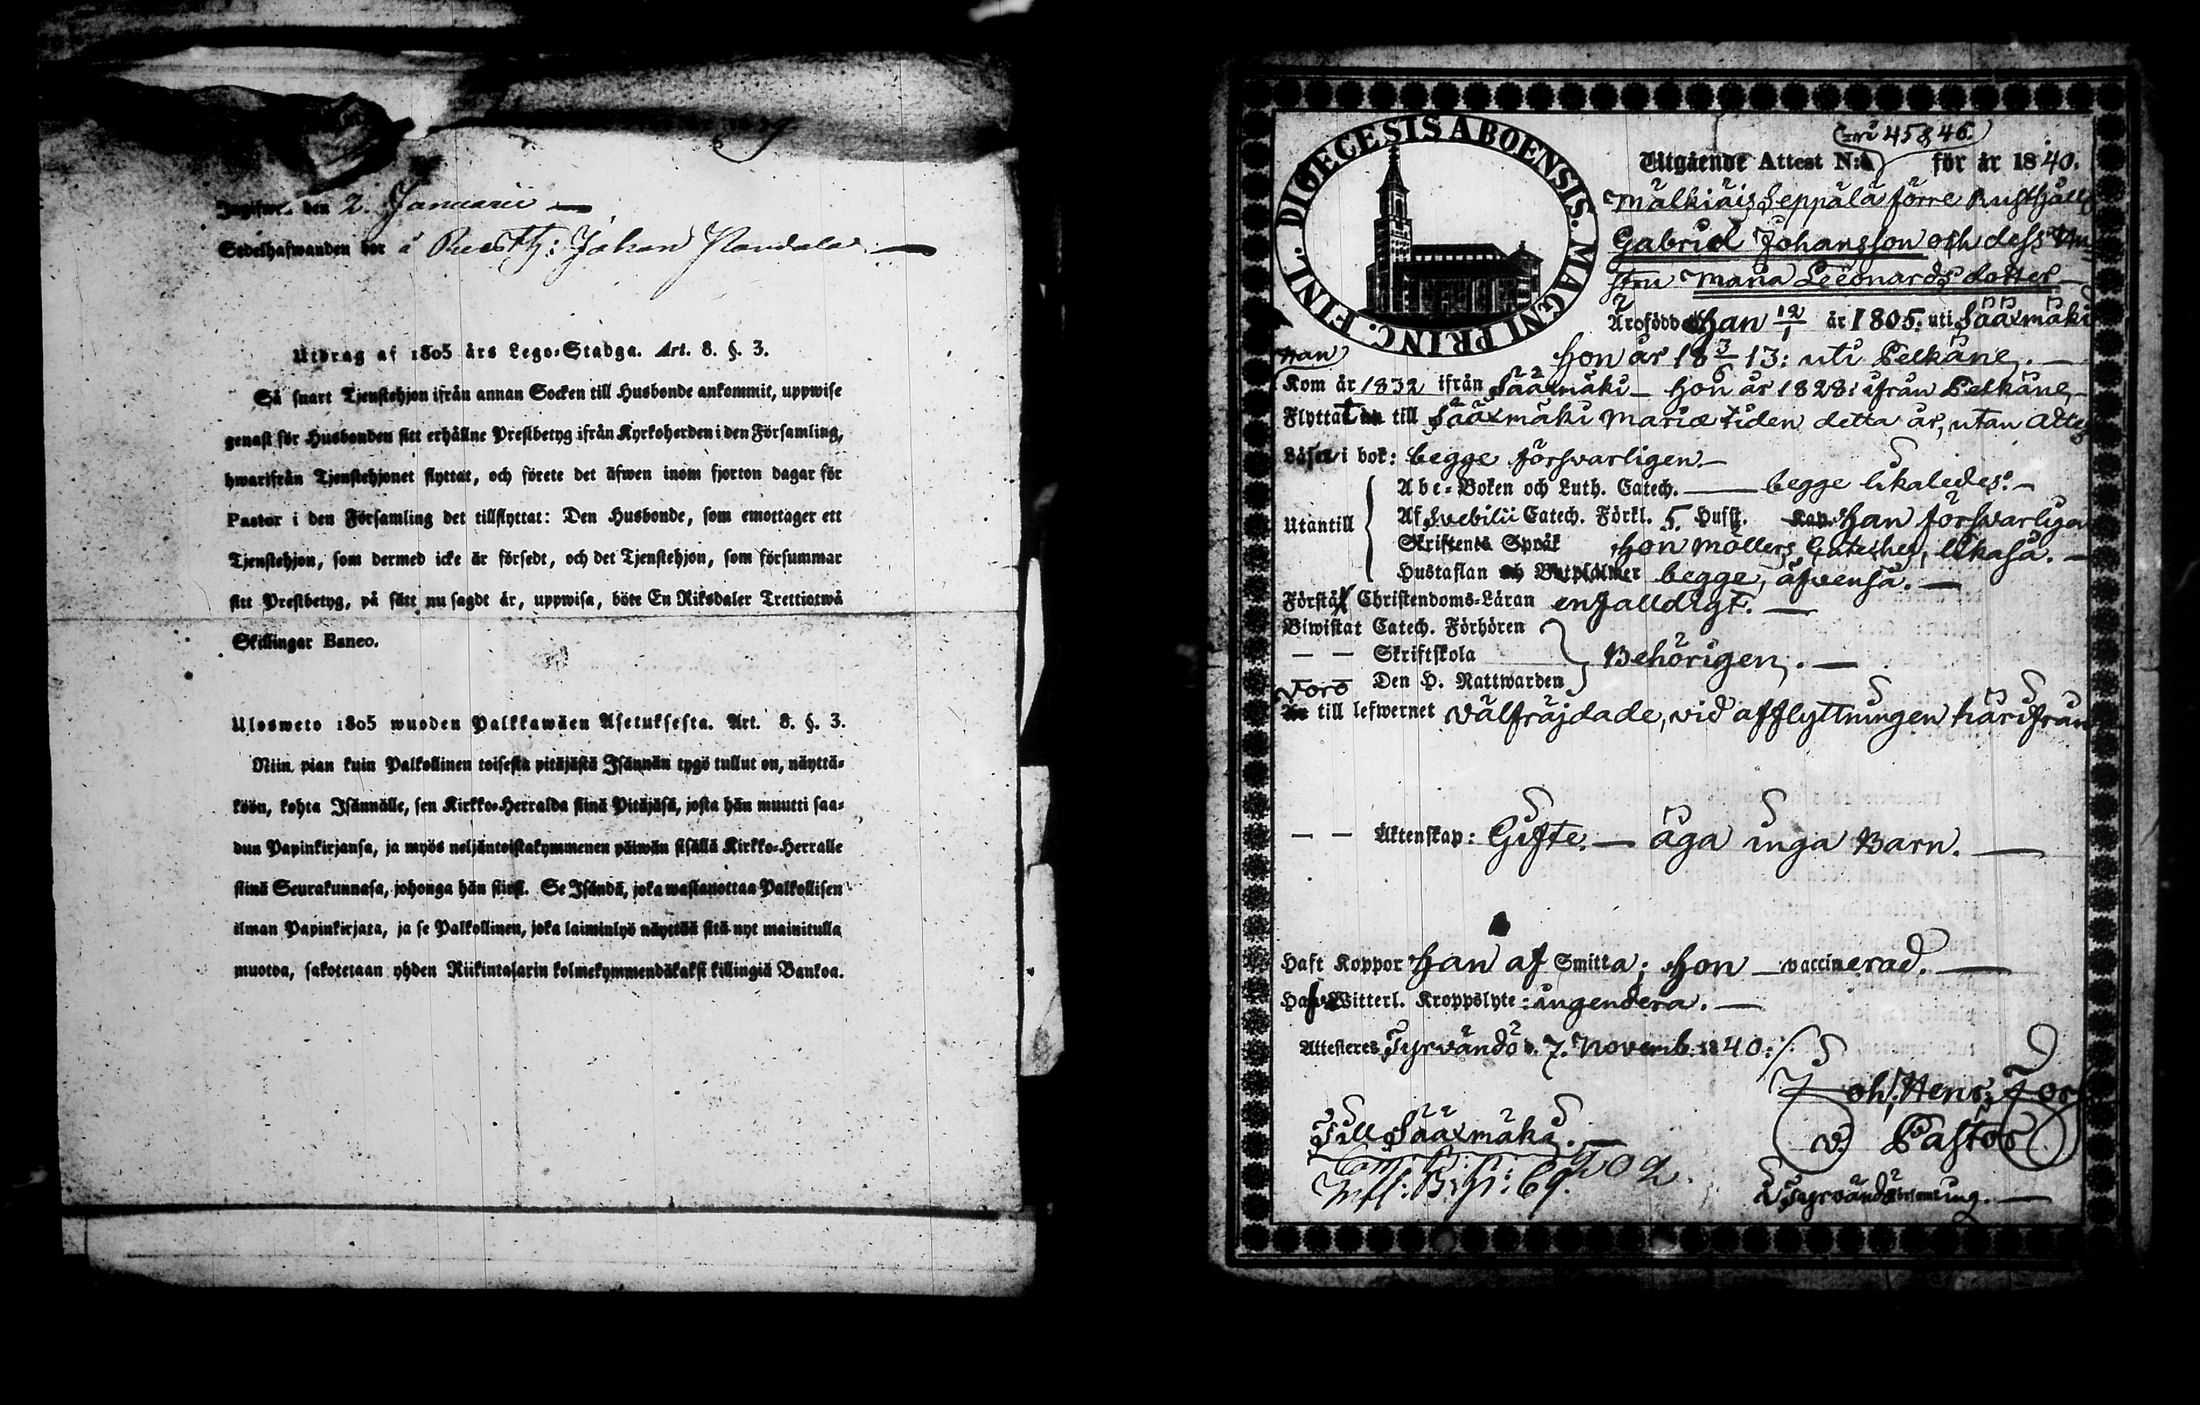 Ingifwes den 2. Januarii —
Sedelhafwanden bor å Rusth: Johan
Utdrag af 1805 års Lego-Stadga. Art. 8. §. 3.
Så snart Tjenstehjon ifrån annan Socken till Husbonde ankommit, uppwise
genast för Husbonden sitt erhållne Prestbetyg ifrån Kyrkoherden i den Församling,
hwarifrån Tjenstehjonet flyttat, och förete det äfwen inom fjorton dagar för
Pastor i den Församling det tillflyttat: Den Husbonde, som emottager ett
Tjenstehjon, som dermed icke är försedt, och det Tjenstehjon, som försummar
sitt Prestbetyg, på sätt nu sagdt är, uppwisa, böte En Riksdaler Trettiotwå
Skillingar Banco.
Ulosweto 1805 wuoden Palkkawäen Asetuksesta. Art. 8. §. 3.
Niin pian kuin Palkollinen toisesta pitäjästä Isännän tygö tullut on, näyttä-
köön, kohta Isännälle, sen Kirkko-Herralda siinä Pitäjäsä, josta hän muutti saa-
dun Papinkirjansa, ja myös neljäntoistakymmenen päiwän sisällä Kirkko-Herralle
siinä Seurakunnasa, johonga hän siirst. Se Isändä, joka wastanottaa Palkollisen
ilman Papinkirjata, ja se Palkollinen, joka laiminlyö näyttää sitä nyt mainitulla
muotoa, sakotetaan yhden Riikintalarin kolmekymmendäkaksi killingiä Bankoa.
DIOECESIS ABOENSIS. MAGNI PRINC. FINL.
45 & 46.
Utgående Attest N:o för år 1840.
Mälkiäis Seppälä förre Rusthåll
Gabriel Johansson och dess
stru Maria Leonardsdotter
Äro födde Han 12/1 år 1805. uti Sääxmäki
hon år 18 3/6 13: uti Pelkäne. —
Han
Kom år 1832 ifrån Sääxmäki — hon år 1828: ifrån Pelkäne
Flyttat till Sääxmäki Mariæ tiden detta år, utan Atte
Läsa i bok: begge försvarligen. —
Utantill
Abc-Boken och Luth. Catech. — begge likaledes. —
Af Svebilii Catech. Förkl. 5. Hufst. Han försvarligen
Skriftens Språk hon Möllers Cateches, likaså. —
Hustaflan och Botpsalmer begge, äfvenså. —
Förstå Christendoms-Läran enfalldigt. —
Biwistat Catech. Förhören
— — Skriftskola Behörigen. —
— — Den H. Nattwarden
Voro
till lefwernet välfräjdade, vid afflyttningen härifrån
— — Äktenskap: Gifte. — äga inga Barn. —
Haft Koppor Han af Smitta; hon — vaccinerad. —
Witterl. Kroppslyte: ingendera. —
Attesteres, Tyrvändö d. 7. Novemb. 1840:
Joh. Henr.
v. Pastor
i Tyrvändö Församling. —
Till Sääxmäki. —
Infl: B: 69. 202.